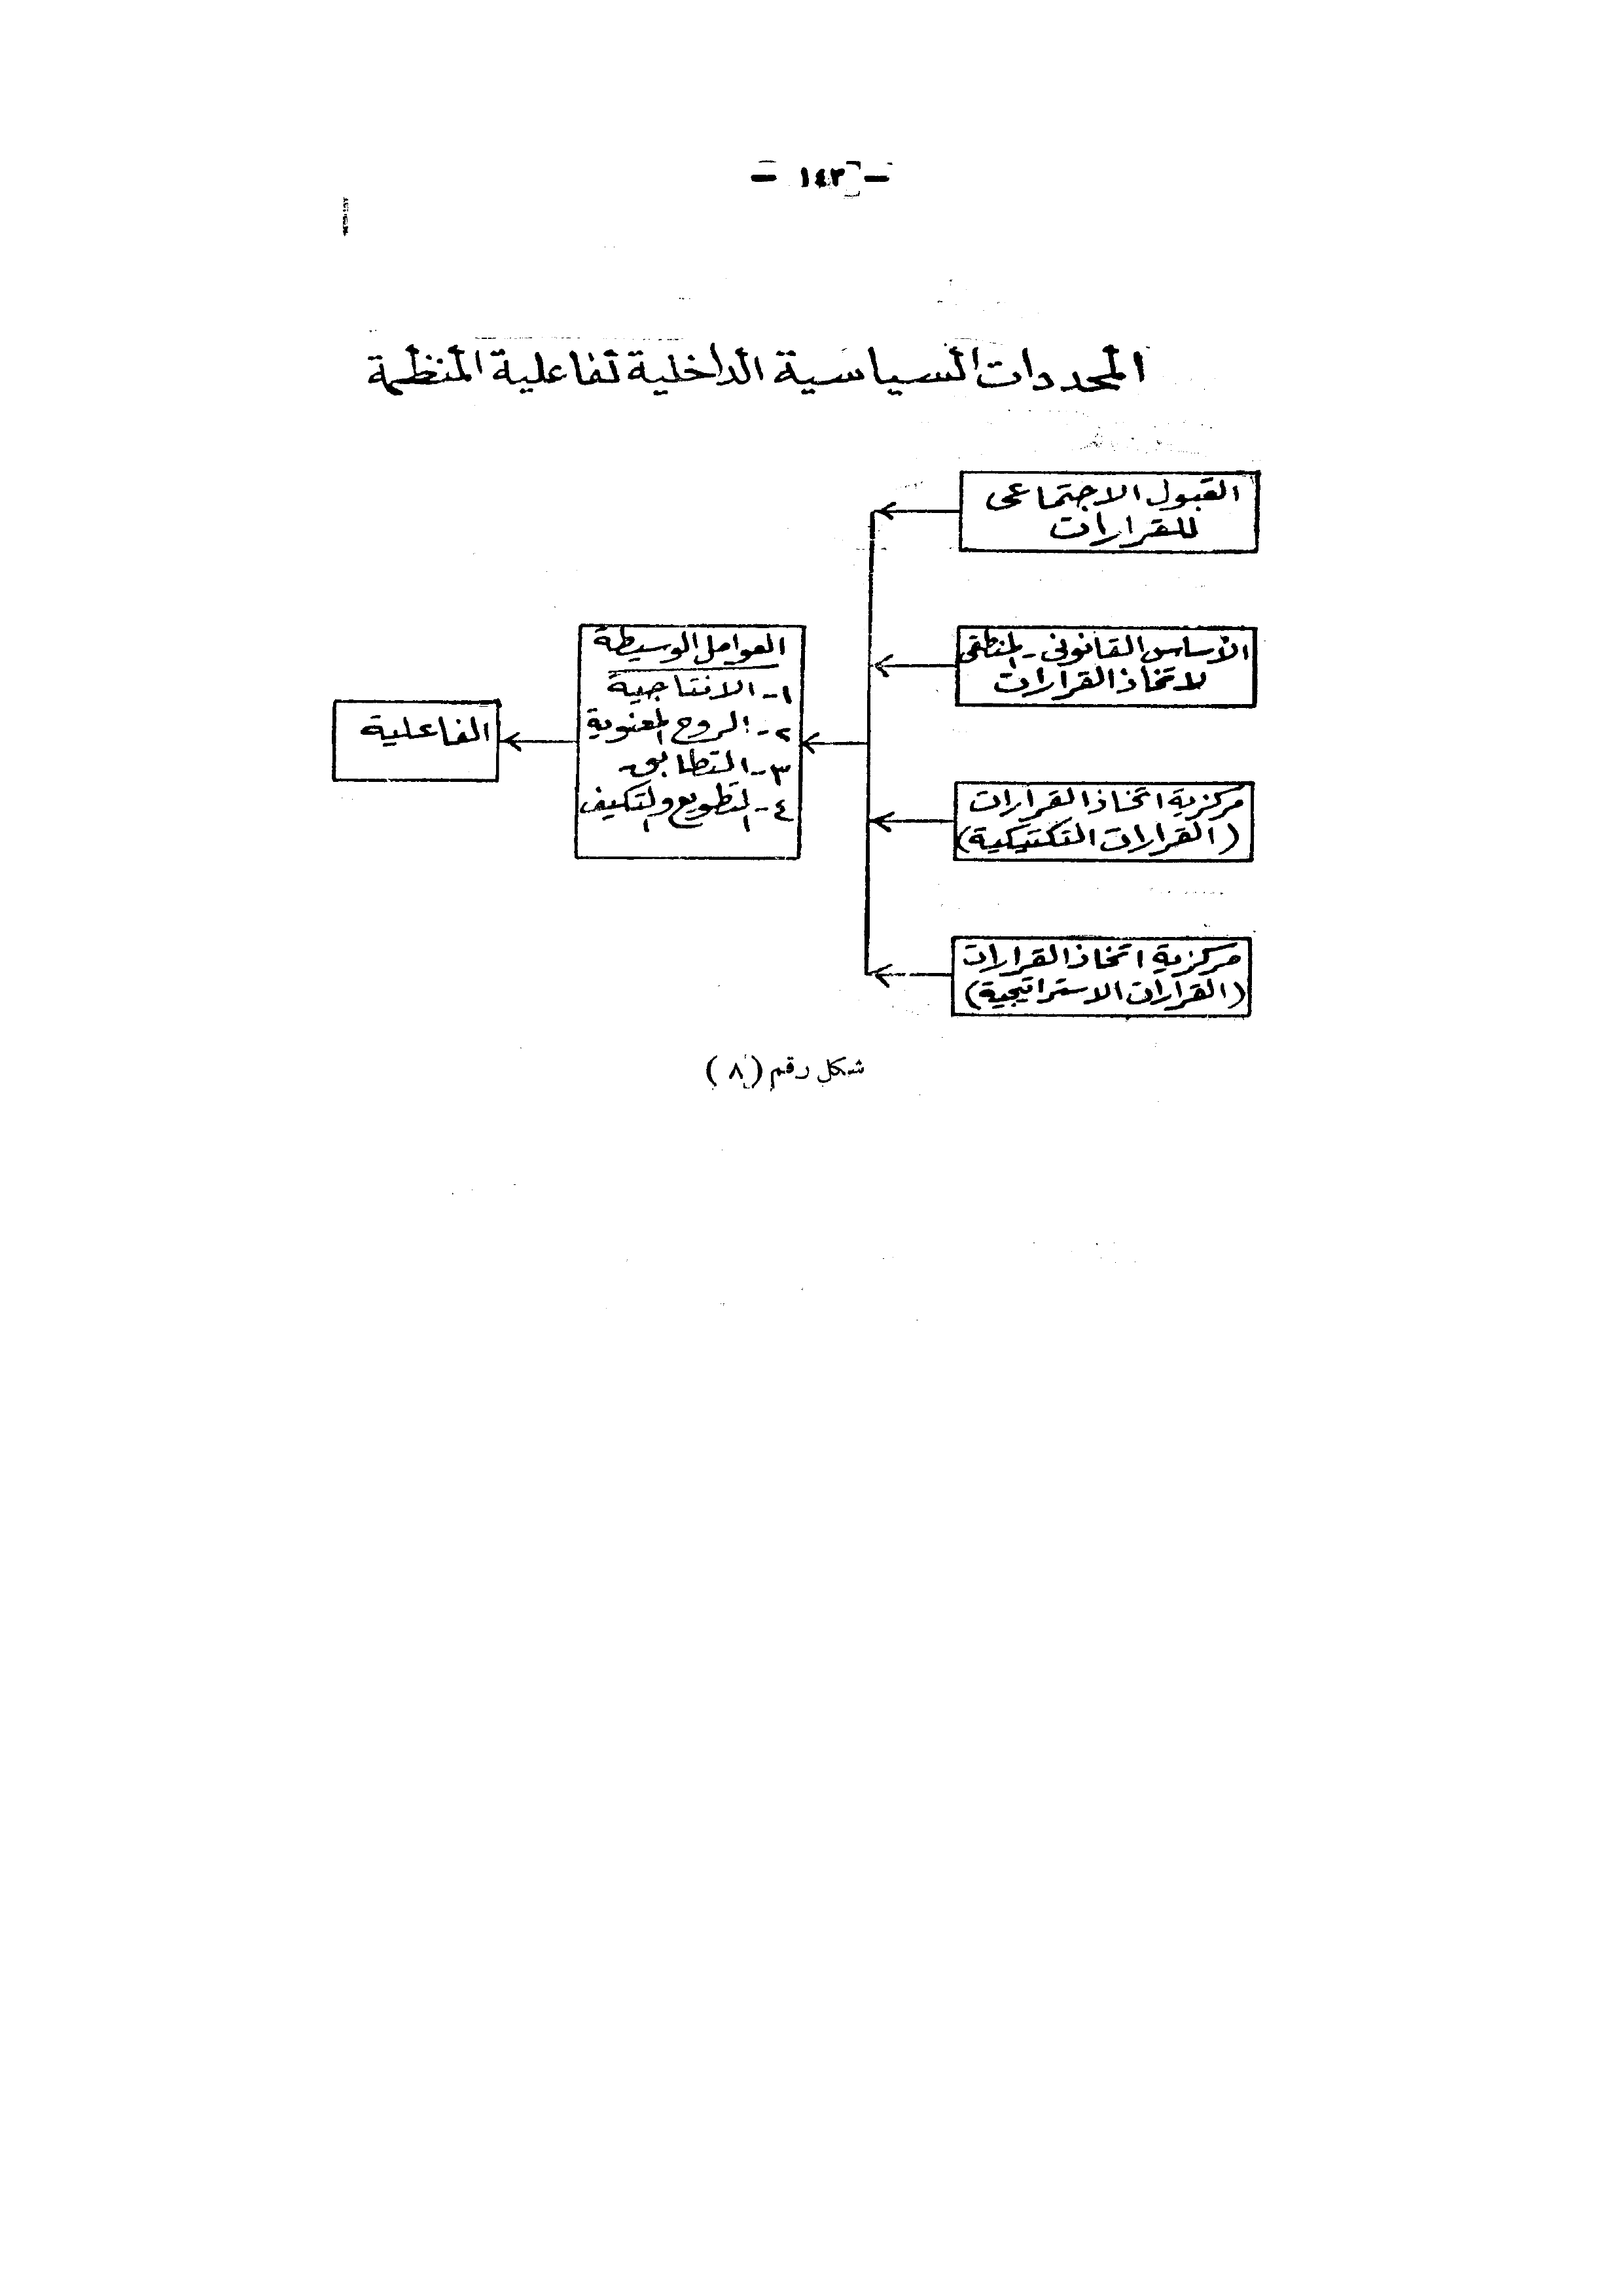 - ١٤٣ -
المحددات السياسية الداخلية لفاعلية المنظمة
القبول الاجتماعى
للقرارات
الأساس القانونى - المنطقى
لاتخاذ القرارات
مركزية اتخاذ القرارات
(القرارات التكتيكية)
مركزية اتخاذ القرارات
(القرارات الاستراتيجية)
العوامل الوسيطة
١- الانتاجية
٢- الروح المعنوية
٣- التطابق
٤- التطويع والتكيف
الفاعلية
شكل رقم (٨)